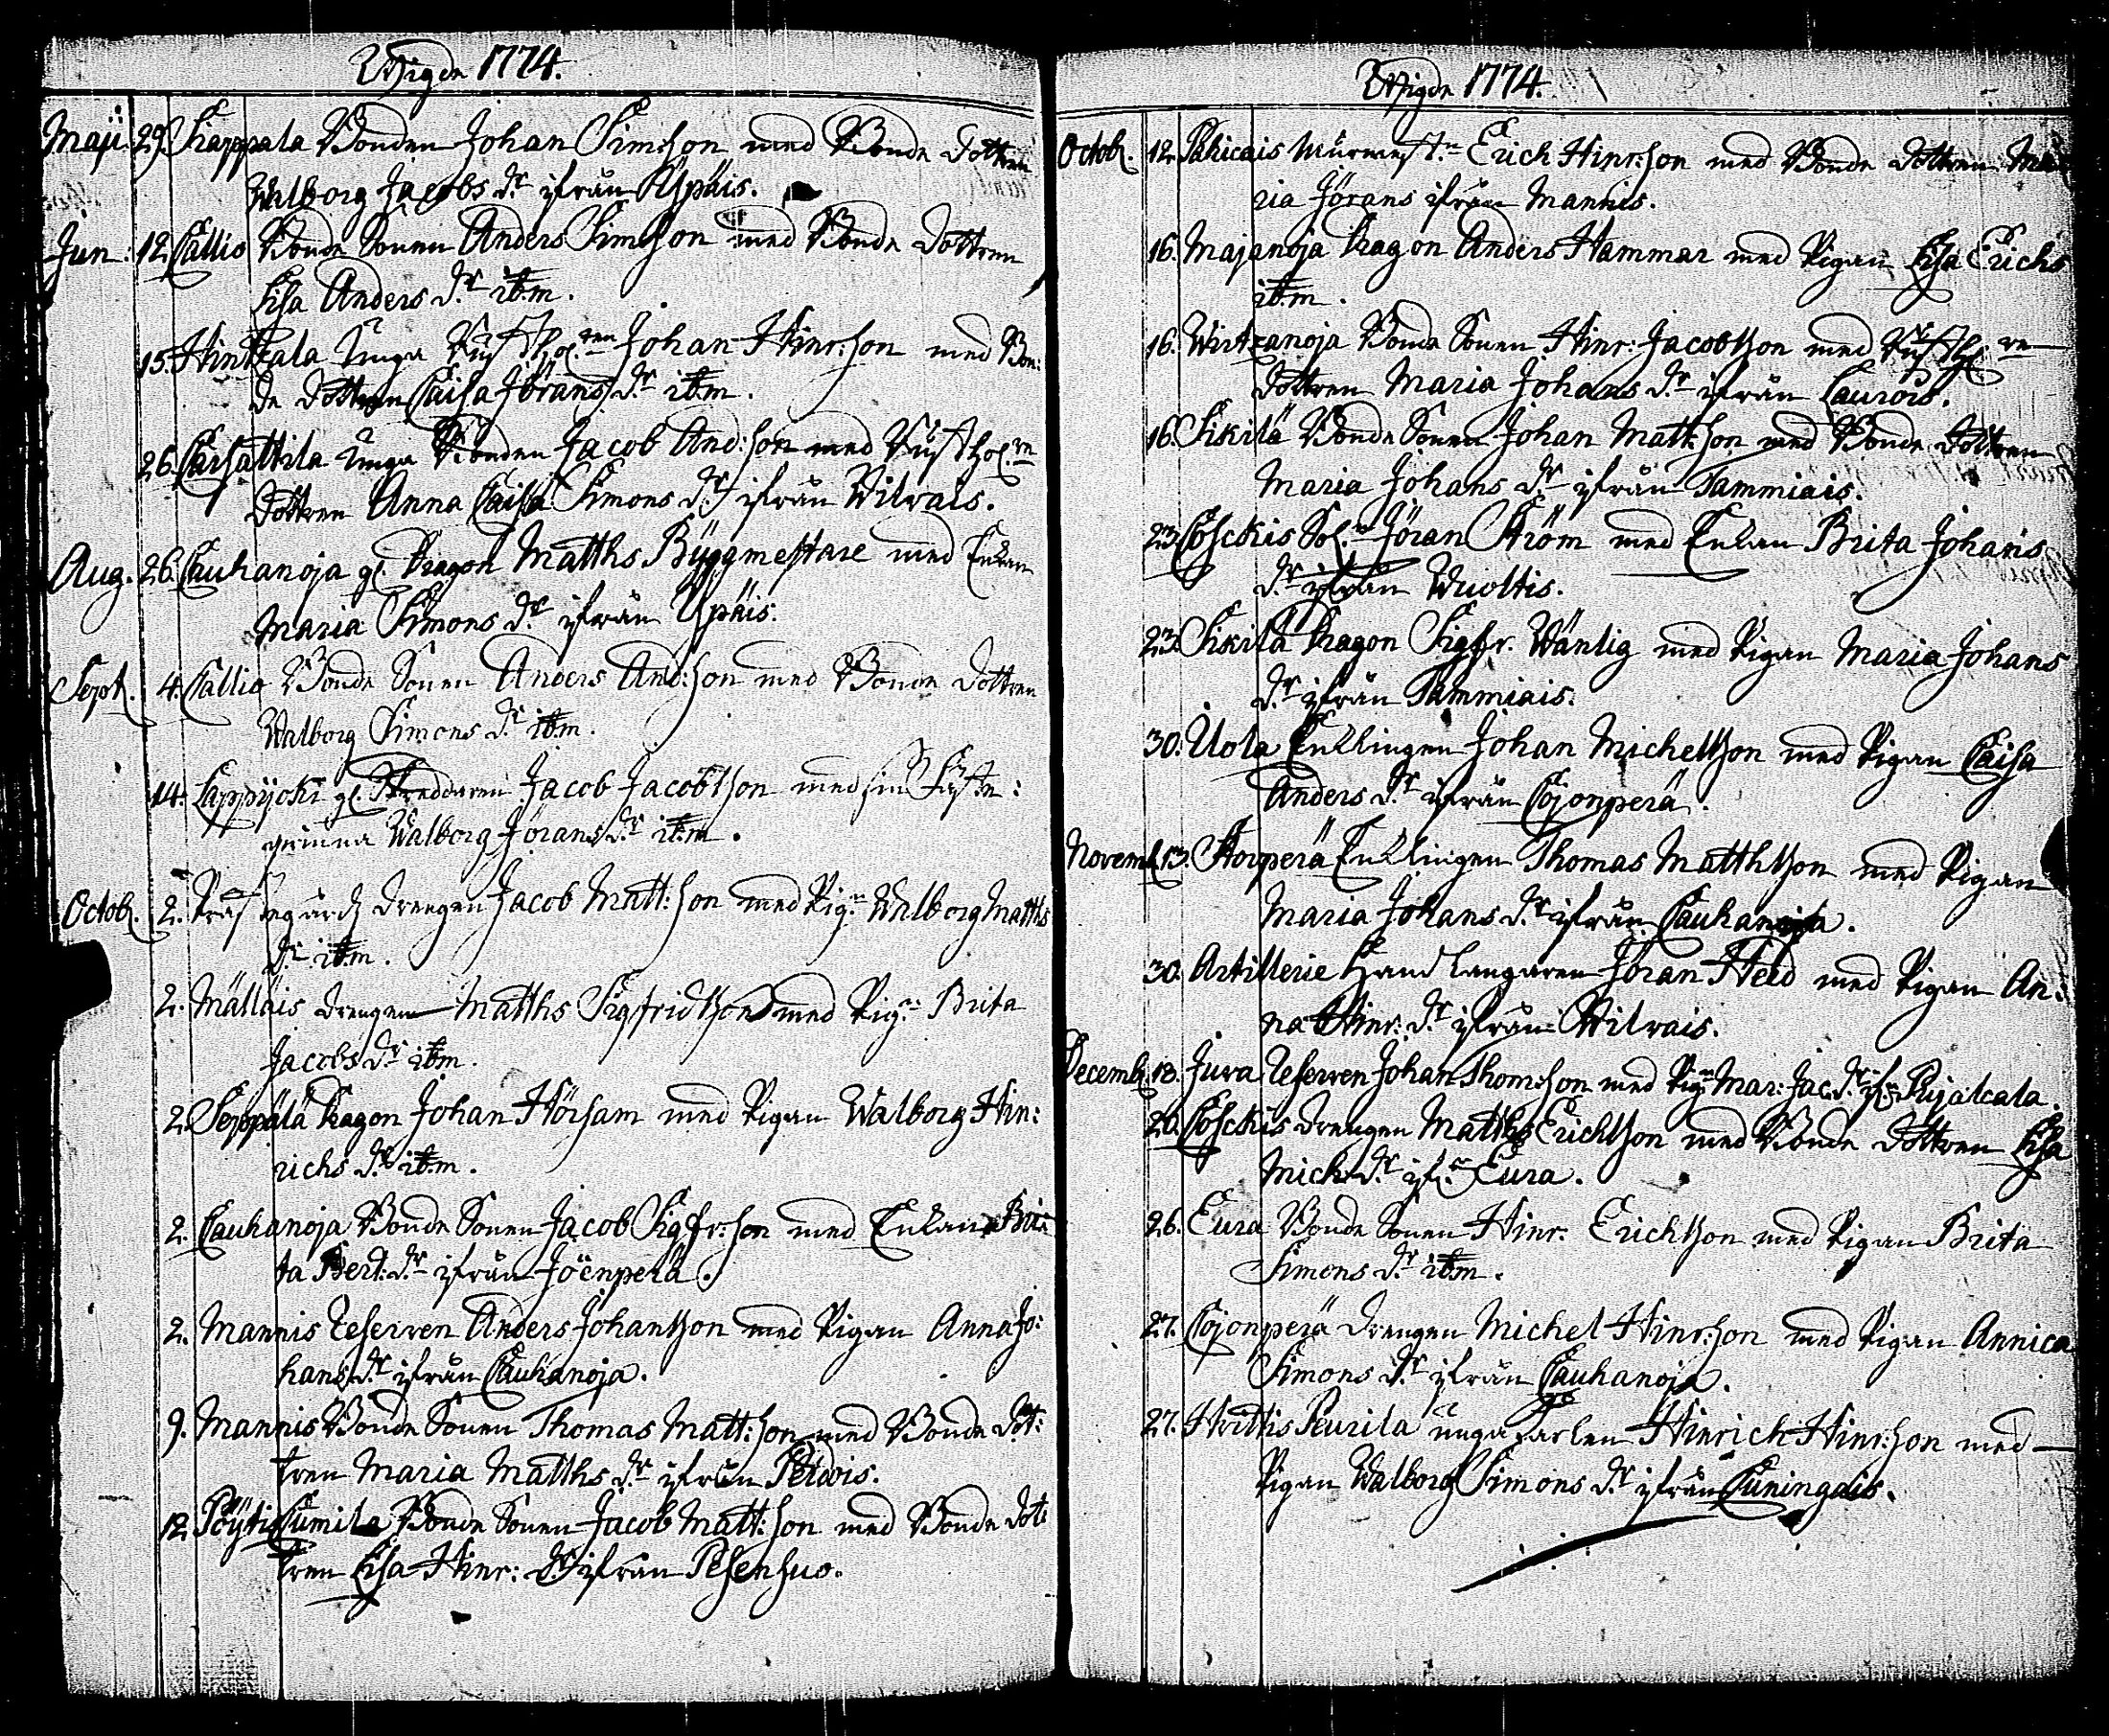 Wigde 1774.
Maji. 29. Kappala Bonden Johan Simsson med Bonde Dottren
Walborg Jacobs dr ifrån Ypäis.
Jun: 12. Callio Bonde Sonen Anders Simsson med Bonde Dottren
Lisa Anders dr ibm.
15. Hinkala Unga Rusthol:ren Johan Hinr:son med Bon:
de Dottren Caisa Jörans dr ibm.
26. Carhattila Unga Bonden Jacob And:son med Rusthol:re
Dottren Anna Caisa Simons dr ifrån Wilvais.
Aug. 26. Cauhanoja gl. Dragon Matths Byggmestare med Enkan
Maria Simons dr ifrån Ypäis.
Sept. 4. Callio Bonde Sonen Anders And:son med Bonde Dottren
Walborg Simons dr ibm.
14. Lappijoki gl. Skreddaren Jacob Jacobsson med sin Fäste:
qvinna Walborg Jörans dr ibm.
Octob. 2. Prästegårds Drengen Jacob Matt:son med Pig:n Walborg Matths
dr ibm.
2. Mälläis Drengen Matths Sigfridsson med Pig:n Brita
Jacobs dr ibm.
2. Seppälä Dragon Johan Hörsam med Pigan Walborg Hin:
richs dr ibm.
2. Cauhanoja Bonde Sonen Jacob Sigfr:son med Enkan Bri:
ta Bert: dr ifrån Jöenperä.
2. Mannis Reserven Anders Johansson med Pigan Anna Jo:
hans dr ifrån Cauhanoja.
9. Mannis Bonde Sonen Thomas Matt:son med Bonde Dot:
tren Maria Matths dr ifrån Peldois.
12. Pöytis Cumila Bonde Sonen Jacob Matt:son med Bonde Dot:
tren Lisa Hinr: dr ifrån Pesensuo.
Wigde 1774.
Octob. 12. Pahicais Murmest:n Erich Hinr:son med Bonde Dottren Ma
ria Jörans ifrån Mannis.
16. Majanoja Dragon Anders Hammar med Pigan Lisa Erichs
ibm.
16. Wirtzanoja Bonde Sonen Hinr: Jacobsson med Rusthol:re
Dottren Maria Johans dr ifrån Laurois.
16. Sikilä Bonde Sonen Johan Matt:son med Bonde Dottren
Maria Johans dr ifrån Tammiais.
23. Coschis Sol:n Jöran Ström med Enkan Brita Johans
dr ifrån Wuoltis.
23. Sikilä Dragon Sigfr. Wänlig med Pigan Maria Johans
dr ifrån Tammiais.
30. Uola Enklingen Johan Michelsson med Pigan Caisa
Anders dr ifrån Cojonperä.
Novemb. 13. Storperä Enklingen Thomas Matthsson med Pigan
Maria Johans dr ifrån Cauhanoja.
30. Artillerie Handlangaren Jöran Heed med Pigan An:
na Hinr: dr ifrån Wilvais.
Decemb. 18. Juva Reserven Johan Thom:son med Pig:n Mar: Jac: dr ifr:n Pujalcala.
26. Coschis Drengen Matths Erichsson med Bonde Dottren Lisa
Mich: dr ifr:n Eura.
26. Eura Bonde Sonen Hinr. Erichsson med Pigan Brita
Simons dr ibm.
27. Cojonperä Drengen Michel Hinr:son med Pigan Annica
Simons dr ifrån Cauhanoja.
27. Hvittis Peurila unga Karlen Hinrich Hinr:son med
Pigan Walborg Simons dr ifrån Cuningais.